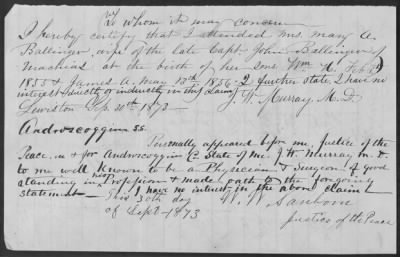 To whom it may concern
I hereby certify that I attended Mrs. Mary A.
Ballinger, wife of the late Capt. John Ballinger of
Machias at the birth of her sons Wm H. Feb 8th
1855 & James A. May 13th 1856 - I further state I have no
interest directly or indirectly in this claim
J. W. Murray, M.D.
Lewiston Sep. 30th 1873 —
Androscoggin SS.
Personally appeared before me Justice of the
Peace in & for Androscoggin Co State of Me. J. W. Murray M.D.
to me well known to be a Physician & Surgeon of good
standing in his Profession & made oath to the foregoing
statement — I have no interest in the above claim
This 30th day
of Sept - 1873
W. W. Sanborn
Justice of the Peace